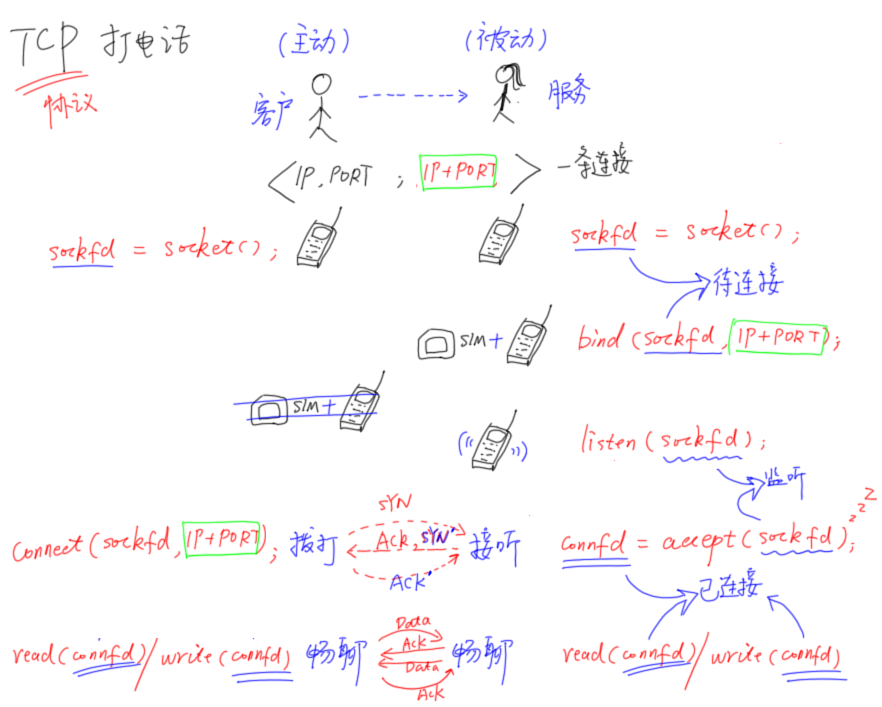 TCP 打电话 (主动) (被动)
协议 客户 服务
<IP, PORT ; IP+PORT> 一条连接
sockfd = socket(); sockfd = socket();
待连接
SIM+ bind(sockfd, IP+PORT);
SIM+
((" ")) listen(sockfd);
监听
SYN
connect(sockfd, IP+PORT); 拨打 Ack, SYN' 接听 connfd = accept(sockfd); zzz
ACK'
已连接
Data
read(connfd)/write(connfd) 畅聊 Ack 畅聊 read(connfd)/write(connfd)
Data
Ack